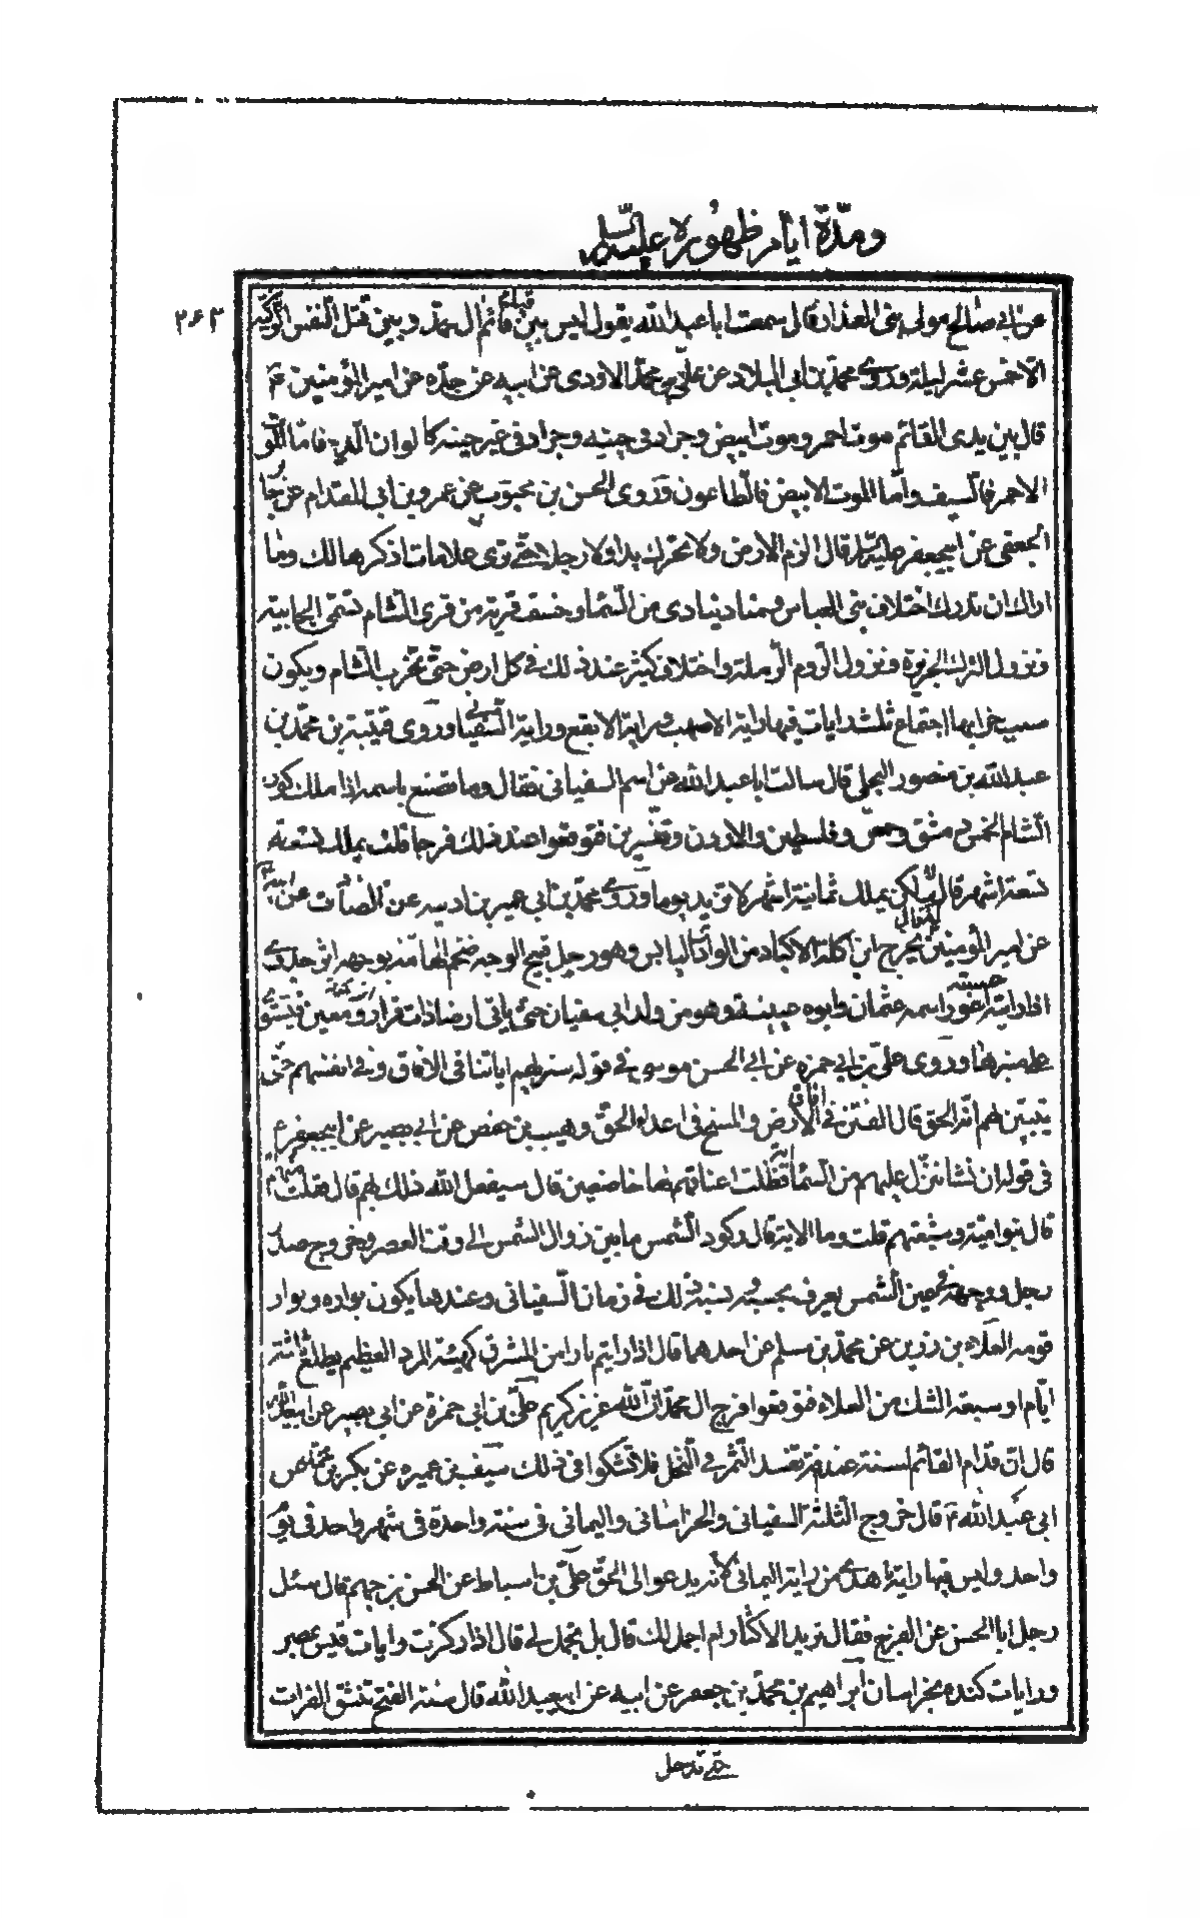 ومدّة ايّام ظهوره عليه السلم
٢٤٣
عن ابى صالح مولى بنى العذرا قال سمعت ابا عبد الله يقول ليس بين قيام قائم ال محمّد وبين قتل النّفس الزّكيّة
الّا خمس عشر ليلة وروى محمّد بن ابى البلاد عن علىّ بن محمّد الاودى عن ابيه عن جدّه عن امير المؤمنين ع
قال بين يدى القائم موت احمر وموت ابيض وجراد فى حينه وجراد فى غير حينه كالوان الدّم فامّا الموت
الاحمر فالسّيف وامّا الموت الابيض فالطّاعون وروى الحسن بن محبوب عن عمرو بن ابى المقدام عن جابر
الجعفى عن ابيجعفر عليه السلم قال الزم الارض ولا تحرّك يدا ولا رجلا حتّى ترى علامات اذكرها لك وما
اراك ان تدرك اختلاف بنى العباس ومناد ينادى من السّماء وخسف قرية من قرى الشّام تسمّى الجابية
ونزول الترك الجزيرة ونزول الرّوم الرّملة واختلاف كثير عند ذلك فى كل ارض حتّى تخرب الشّام ويكون
سبب خرابها اجتماع ثلث رايات فيها راية الاصهب وراية الابقع وراية السّفيانى وروى قتيبة بن محمّد بن
عبد الله بن منصور البجلى قال سالت ابا عبد الله عن اسم السفيانى فقال وما تصنع باسمه اذا ملك كور
الشام الخمس دمشق وحمص وفلسطين والاردن وقنّسرين فتوقعوا عند ذلك فرجا قلت يملك تسعة
تسعة اشهر قال لا ولكن يملك ثمانية اشهر لا تزيد يوما وروى محمّد بن ابى عمير بن اذينه عن الصّادق عن ابيه
عن امير المؤمنين قال يخرج ابن اكلة الاكباد من الوادى اليابس وهو رجل قبيح الوجه ضخم الهامة بوجهه اثر جدرى
اذا رايته حسبته اعور اسمه عثمان وابوه عيينه وهو من ولد ابى سفيان حتّى ياتى ارضا ذات قرار ومعين فيستوى
على منبرها وروى علىّ بن ابى حمزه عن ابى الحسن موسى فى قوله سنريهم اياتنا فى الافاق وفى انفسهم حتّى
يتبيّن لهم انّه الحق قال الفتن فى افاق الارض والمسخ فى اعداء الحقّ وهيب بن حفص عن ابى بصير عن ابيجعفر ع
فى قوله ان نشا ننزّل عليهم من السّماء اية فظلّت اعناقهم لها خاضعين قال سيفعل الله ذلك بهم قال فقلت من هم
قال بنو اميّة وشيعتهم قلت وما الاية قال ركود الشّمس ما بين زوال الشّمس الى وقت العصر وخروج صدر
رجل ووجهه فى عين الشّمس يعرف بحسبه ونسبه ذلك فى زمان السّفيانى وعندها يكون بواره وبوار
قومه العلاء بن رزين عن محمّد بن مسلم عن احدهما قال اذا رايتم نارا من المشرق كهيئة المرد العظيم يطلع ثلثة
ايّام او سبعة الشك من العلاء فتوقعوا فرج ال محمّد انّ الله عزيز كريم علىّ بن ابى حمزة عن ابى بصير عن ابيعبد الله
قال انّ قدّام القائم لسنة غيداقة تفسد الثّمر فى النّخل فلا تشكوا فى ذلك سيف بن عميره عن بكر بن محمّد عن
ابى عبد الله ع قال خروج الثّلثة السفيانى والخراسانى واليمانى فى سنة واحدة فى شهر واحد فى يوم
واحد وليس فيها راية اهدى من راية اليمانى لانه يدعوا الى الحقّ علىّ بن اسباط عن الحسن بن جهم قال سئل
رجل ابا الحسن عن الفرج فقال تريد الاكثار ام اجمل لك قال بل تجمل لى قال اذا ركزت رايات قيس بمصر
ورايات كنده بخراسان ابراهيم بن محمّد بن جعفر عن ابيه عن ابيعبد الله قال سنة الفتح تنشق الفرات
حتّى تدخل